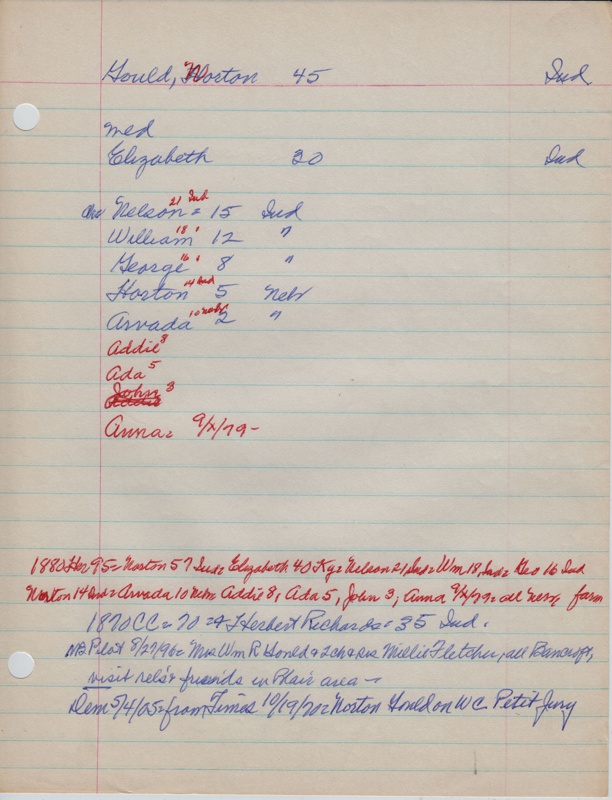 Gould, Norton 45 Ind
med
Elizabeth 30 Ind
chr Nelson = 15 Ind 21 Ind
William 12 " 18 "
George 8 " 16 "
Horton 5 Nebr 14 Ind
Arvada 2 " 10 Nebr
Addie 8
Ada 5
John 3
Anna = 9/12/79 -
1880 Her 95 = Norton 57 Ind = Elizabeth 40 Ky = Nelson 21, Ind = Wm 18, Ind = Geo 16 Ind
Norton 14 Ind = Arvada 10 Nebr Addie 8, Ada 5, John 3, Anna 9/12/79 = all Nebr farm
1870 CC = 70 = & Herbert Richards = 35 Ind.
Pilot 8/27/96 = Mrs Wm R Gould & 2 ch & sis Millie Fletcher, all Bancroft,
visit rels & friends in Blair area -
Dem 5/4/05 = from Times 10/19/70 = Norton Gould on WC Petit Jury